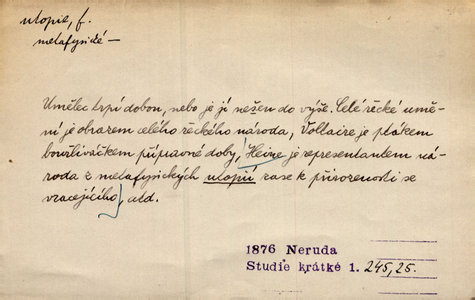 utopie, f.
metafysické —
Umělec trpí dobou, nebo je jí nešen do výše. Celé řecké umě-
ní je obrazem celého řeckého národa, Voltaire je ptákem
bouřliváčkem přípravné doby, Heine je representantem ná-
roda z metafysických utopií zase k přirozenosti se
vracejícího, atd.
1876 Neruda
Studie krátké 1. 245, 25.